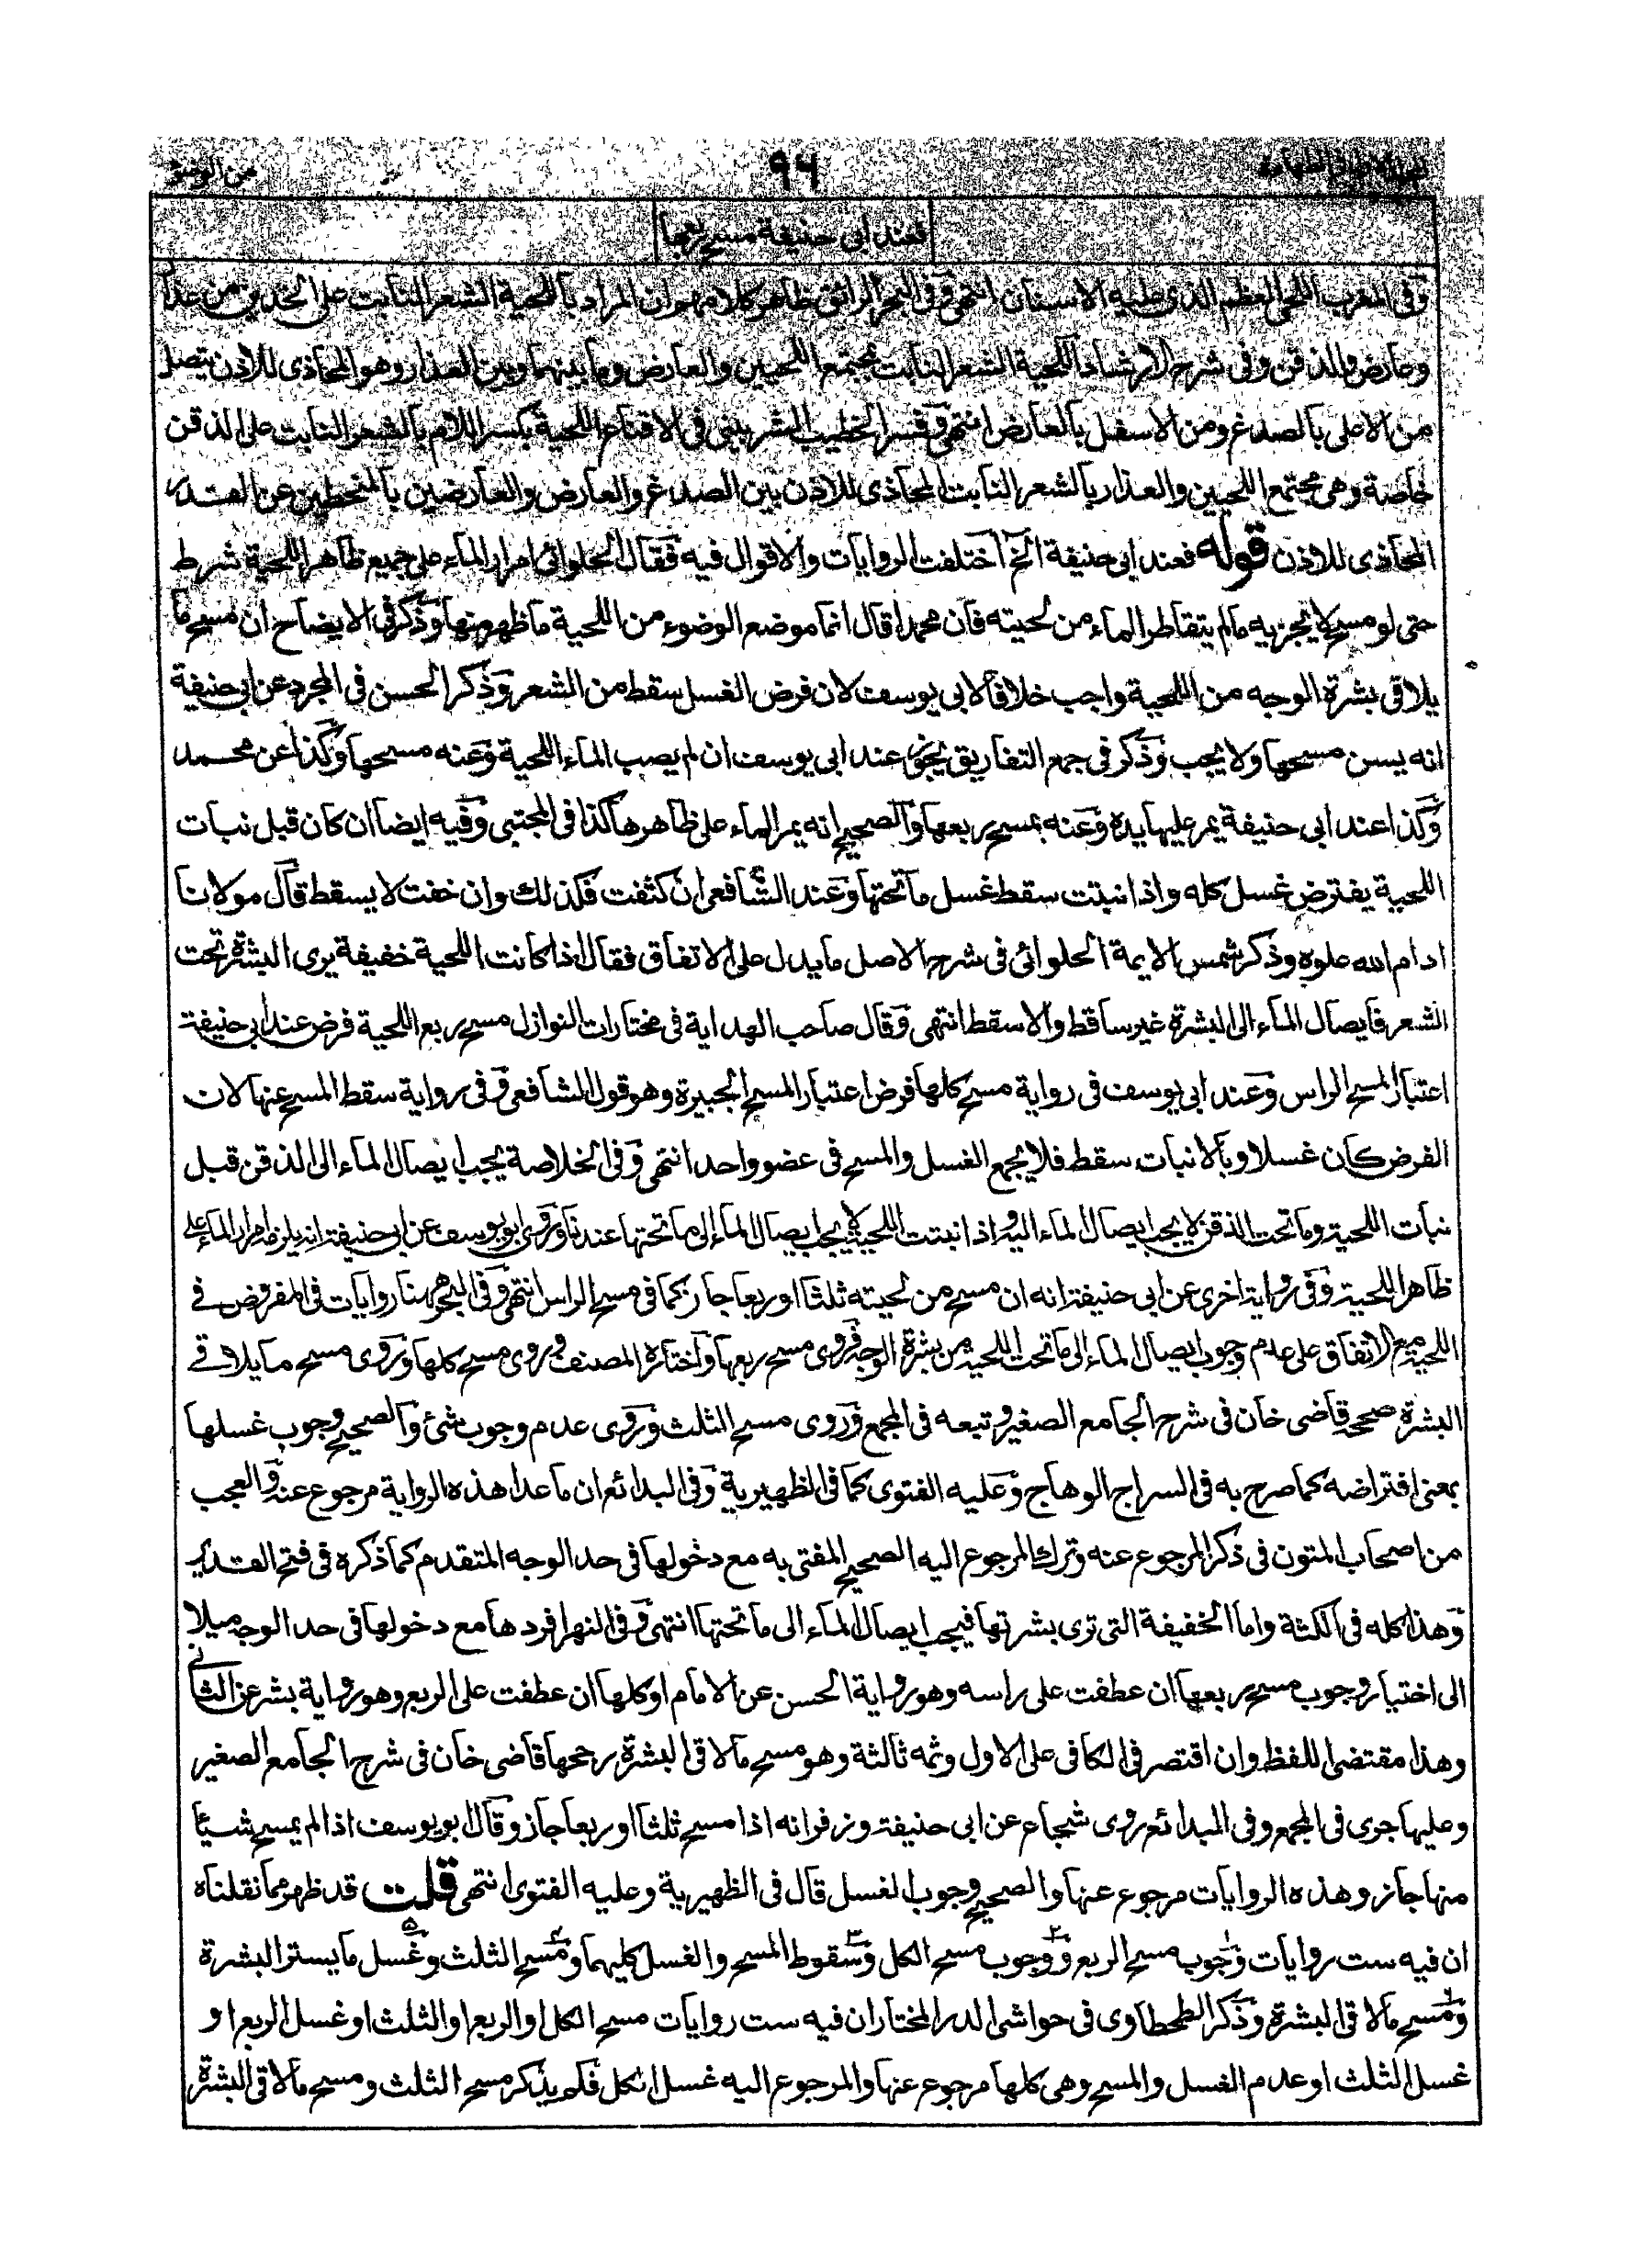 من الوضوء ٩٦ الطهارة
فعند ابى حنيفة مسح ربعها
وفى المغرب اللحى العظم الذى عليه الاسنان انتهى وفى البحر الرائق ظاهر كلامهم ان المراد باللحية الشعر النابت على الخدين من عذار
وعارض والذقن وفى شرح الارشاد اللحية الشعر النابت بمجتمع اللحيين والعارض وما بينهما وبين العذار وهو المحاذى للاذن يتصل
من الاعلى بالصدغ ومن الاسفل بالعارض انتهى وفسر الخطيب الشربينى فى الاقناع اللحية بكسر اللام بالشعر النابت على الذقن
خاصة وهى مجتمع اللحيين والعذار بالشعر النابت المحاذى للاذن بين الصدغ والعارض والعارضين بالمنحطين عن القدر
المحاذى للاذن قوله فعند ابى حنيفة الخ اختلفت الروايات والاقوال فيه فقال الحلوائى امرار الماء على جميع ظاهر اللحية شرط
حتى لو مسح لا يجزيه مالم يتقاطر الماء من لحيته فان محمدا قال انما موضع الوضوء من اللحية ما ظهر منها وذكر فى الايضاح ان مسح ما
يلاقى بشرة الوجه من اللحية واجب خلافا لابى يوسف لان فرض الغسل سقط من الشعر وذكر الحسن فى المجرد عن ابى حنيفة
انه يسن مسحها ولا يجب وذكر فى جمع التفاريق يجوز عند ابى يوسف ان لم يصب الماء اللحية وعنه مسحها وكذا عن محمد
وكذا عند ابى حنيفة يمر عليها يده وعنه بمسح ربعها والصحيح انه يمر الماء على ظاهرها كذا فى المجتبى وفيه ايضا ان كان قبل نبات
اللحية يفترض غسل كله واذا نبتت سقط غسل ما تحتها وعند الشافعى ان كثفت فكذلك وان خفت لا يسقط قال مولانا
ادام الله علوه وذكر شمس الايمة الحلوائى فى شرح الاصل ما يدل على الاتفاق فقال اذا كانت اللحية خفيفة يرى البشرة تحت
الشعر فايصال الماء الى البشرة غير ساقط والا سقط انتهى وقال صاحب الهداية فى مختارات النوازل مسح ربع اللحية فرض عند ابى حنيفة
اعتبارا لمسح الراس وعند ابى يوسف فى رواية مسح كلها فرض اعتبارا لمسح الجبيرة وهو قول الشافعى وفى رواية سقط المسح عنها لان
الفرض كان غسلا وبالانبات سقط فلا يجمع الغسل والمسح فى عضو واحد انتهى وفى الخلاصة يجب ايصال الماء الى الذقن قبل
نبات اللحية وما تحت الذقن لا يجب ايصال الماء اليه واذا نبتت اللحية لا يجب ايصال الماء الى ما تحتها عندنا وروى ابو يوسف عن ابى حنيفة انه يلزمه امرار الماء على
ظاهر اللحية وفى رواية اخرى عن ابى حنيفة انه ان مسح من لحيته ثلثا او ربعا جاز كما فى مسح الراس انتهى وفى البحر ههنا روايات فى المفروض فى
اللحية مع الاتفاق على عدم وجوب ايصال الماء الى ما تحت اللحية من بشرة الوجه فروى مسح ربعها واختاره المصنف وروى مسح كلها وروى مسح ما يلاقى
البشرة صححه قاضى خان فى شرح الجامع الصغير وتبعه فى المجمع وروى مسح الثلث وروى عدم وجوب شئ والصحيح وجوب غسلها
بمعنى افتراضه كما صرح به فى السراج الوهاج وعليه الفتوى كما فى الظهيرية وفى البدائع ان ما عدا هذه الرواية مرجوع عنه والعجب
من اصحاب المتون فى ذكر المرجوع عنه وترك المرجوع اليه الصحيح المفتى به مع دخولها فى حد الوجه المتقدم كما ذكره فى فتح القدير
وهذا كله فى الكثة واما الخفيفة التى ترى بشرتها فيجب ايصال الماء الى ما تحتها انتهى وفى النهر افردها مع دخولها فى حد الوجه ميلا
الى اختيار وجوب مسح ربعها ان عطفت على راسه وهو رواية الحسن عن الامام او كلها ان عطفت على الربع وهو رواية بشر عن الثانى
وهذا مقتضى اللفظ وان اقتصر فى الكافى على الاول وثمه ثالثة وهو مسح ما لاقى البشرة رجحها قاضى خان فى شرح الجامع الصغير
وعليها جرى فى المجمع وفى البدائع روى شجاع عن ابى حنيفة وزفر انه اذا مسح ثلثا او ربعا جاز وقال ابو يوسف اذا لم يمسح شيئا
منها جاز وهذه الروايات مرجوع عنها والصحيح وجوب الغسل قال فى الظهيرية وعليه الفتوى انتهى قلت قد ظهر مما نقلناه
ان فيه ست روايات وجوب مسح الربع ووجوب مسح الكل وسقوط المسح والغسل كليهما ومسح الثلث وغسل ما يستر البشرة
ومسح ما لاقى البشرة وذكر الطحطاوى فى حواشى الدر المختار ان فيه ست روايات مسح الكل او الربع او الثلث او غسل الربع او
غسل الثلث او عدم الغسل والمسح وهى كلها مرجوع عنها والمرجوع اليه غسل الكل فلم يذكر مسح الثلث ومسح ما لاقى البشرة